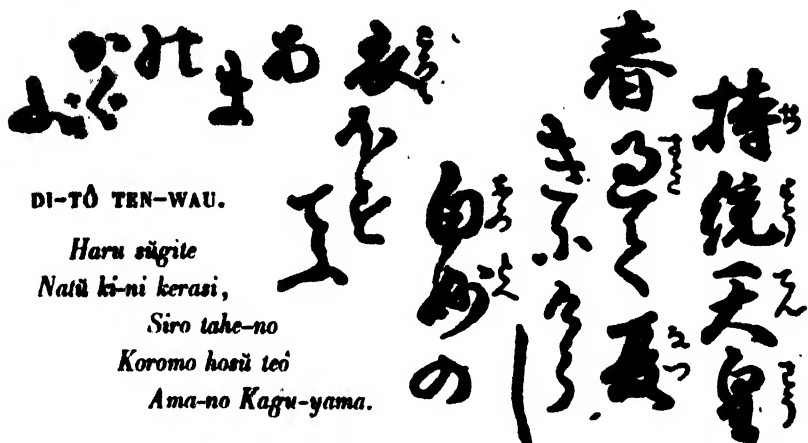 持統天皇
春過て夏
きにけらし
白妙の
衣ほす
てふ
あまのかぐ山
DI-TÔ TEN-WAU.
Haru sŭgite
Natŭ ki-ni kerasi,
Siro tahe-no
Koromo hosŭ teô
Ama-no Kagu-yama.